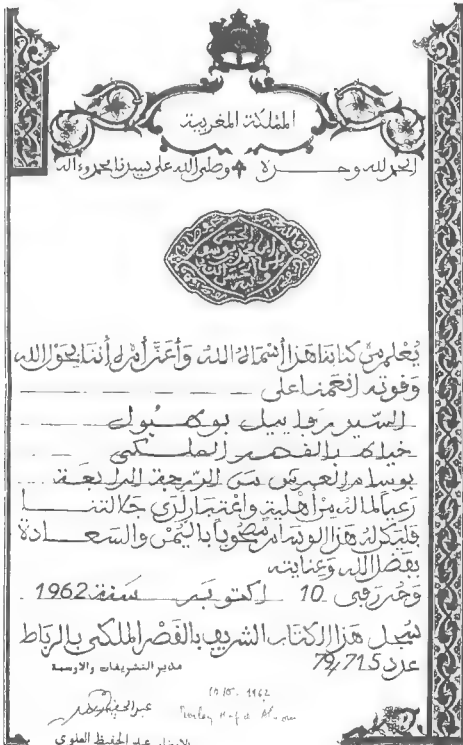 المملكة المغربية
الحمد لله وحده وصلى الله على سيدنا محمد وءاله
يعلم من كتابنا هذا أسماه الله وأعز أمره أننا بحول الله
وقوته انعمنا على
السيد روفاييل بوهبول
خياط بالقصر الملكي
بوسام العرش من الدرجة الرابعة
رعيا لما له من أهلية واعتبار لدى جلالتنا
فليكن له هذا الوسام مصحوبا باليمن والسعادة
بفضل الله وعنايته
وحرر في 10 اكتوبر سنة 1962
سجل هذا الكتاب الشريف بالقصر الملكي بالرباط
عدد 79,715
مدير التشريفات والاوسمة
10.10.1962
عبد الحفيظ العلوي